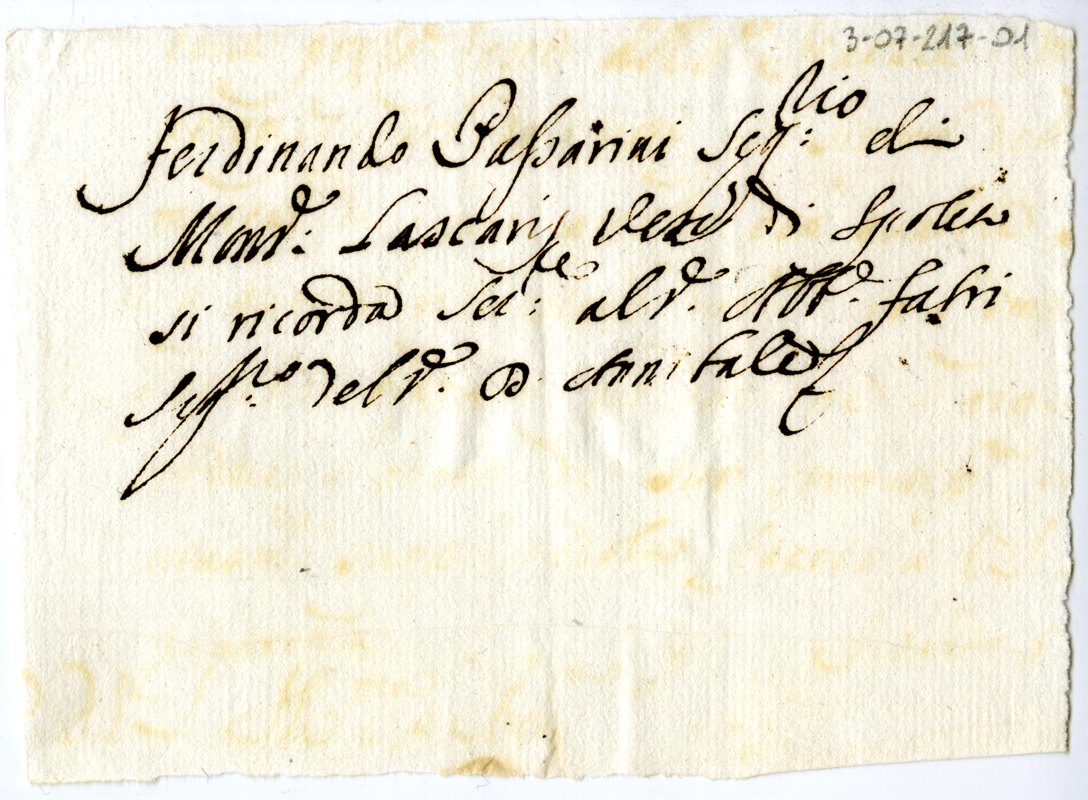 3-07-217-01
Ferdinando Passarini Seg:rio di
Monsr: Lascaris Vesc di Spoleto
si ricorda Ser:re al Sr. Abb.e Fabri
Seg.rio del Sr. D Annibale